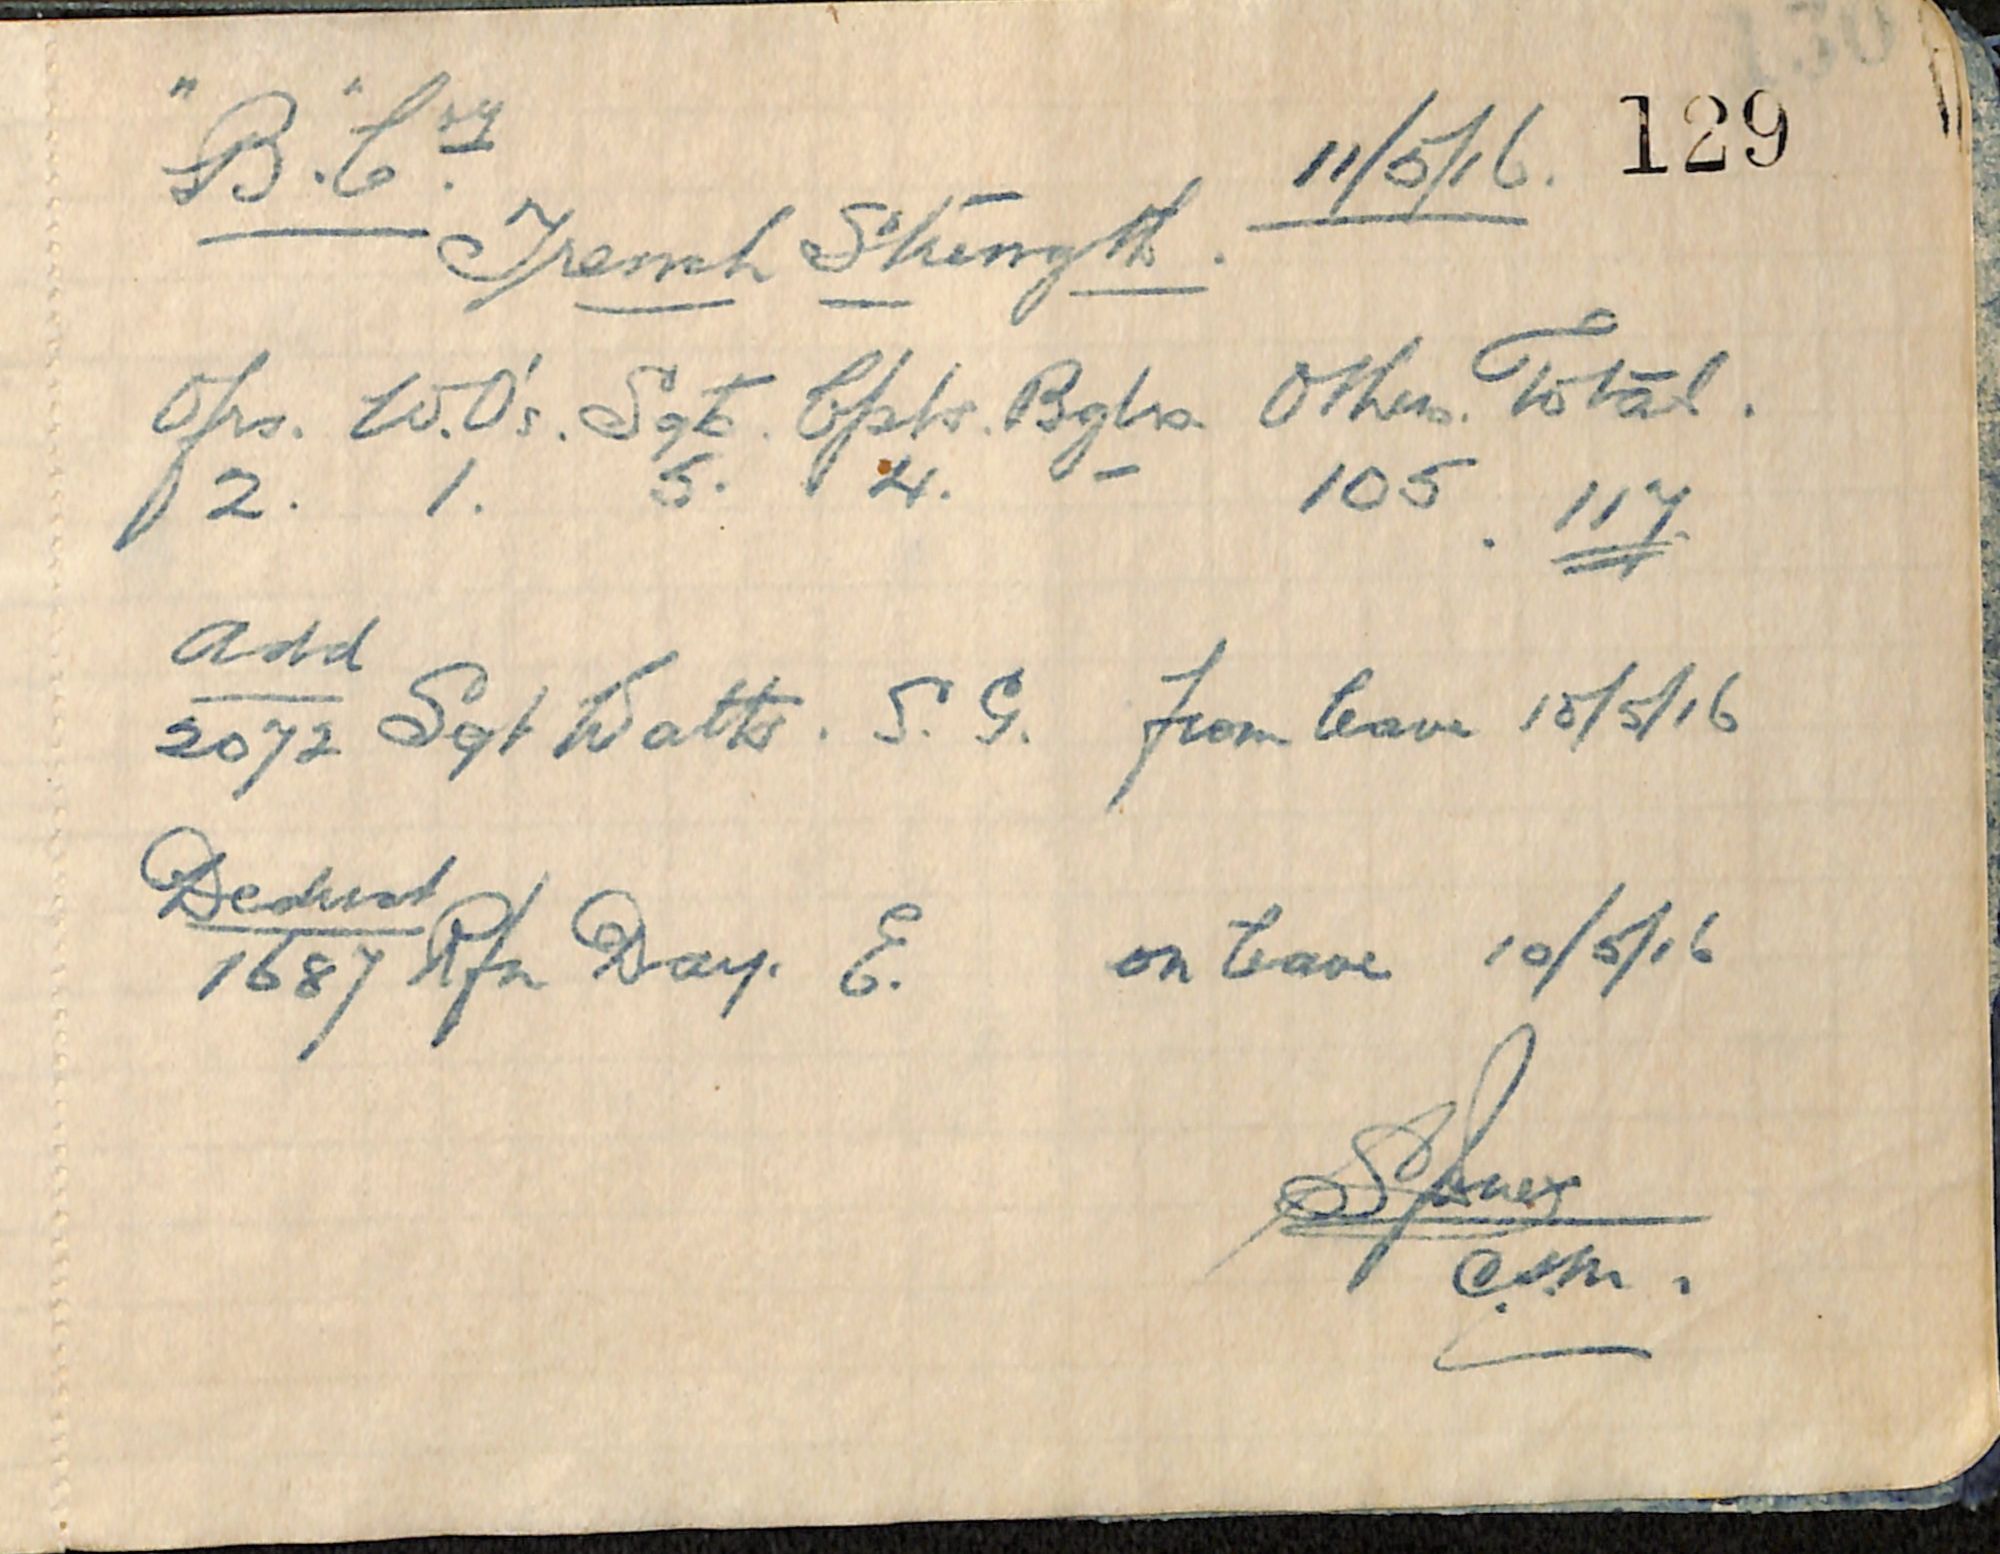 "B" Coy. 11/5/16. 129
Trench Strength.
Ofrs. W.O's. Sgts. Cpls. Bglrs. Others. Total.
2. 1. 5. 4. - 105. 117.
Add
2072 Sgt Watts. S. G. from leave 10/5/16
Deduct
1687 Rfn Day. E. on leave 10/5/16
SJones
C.S.M.